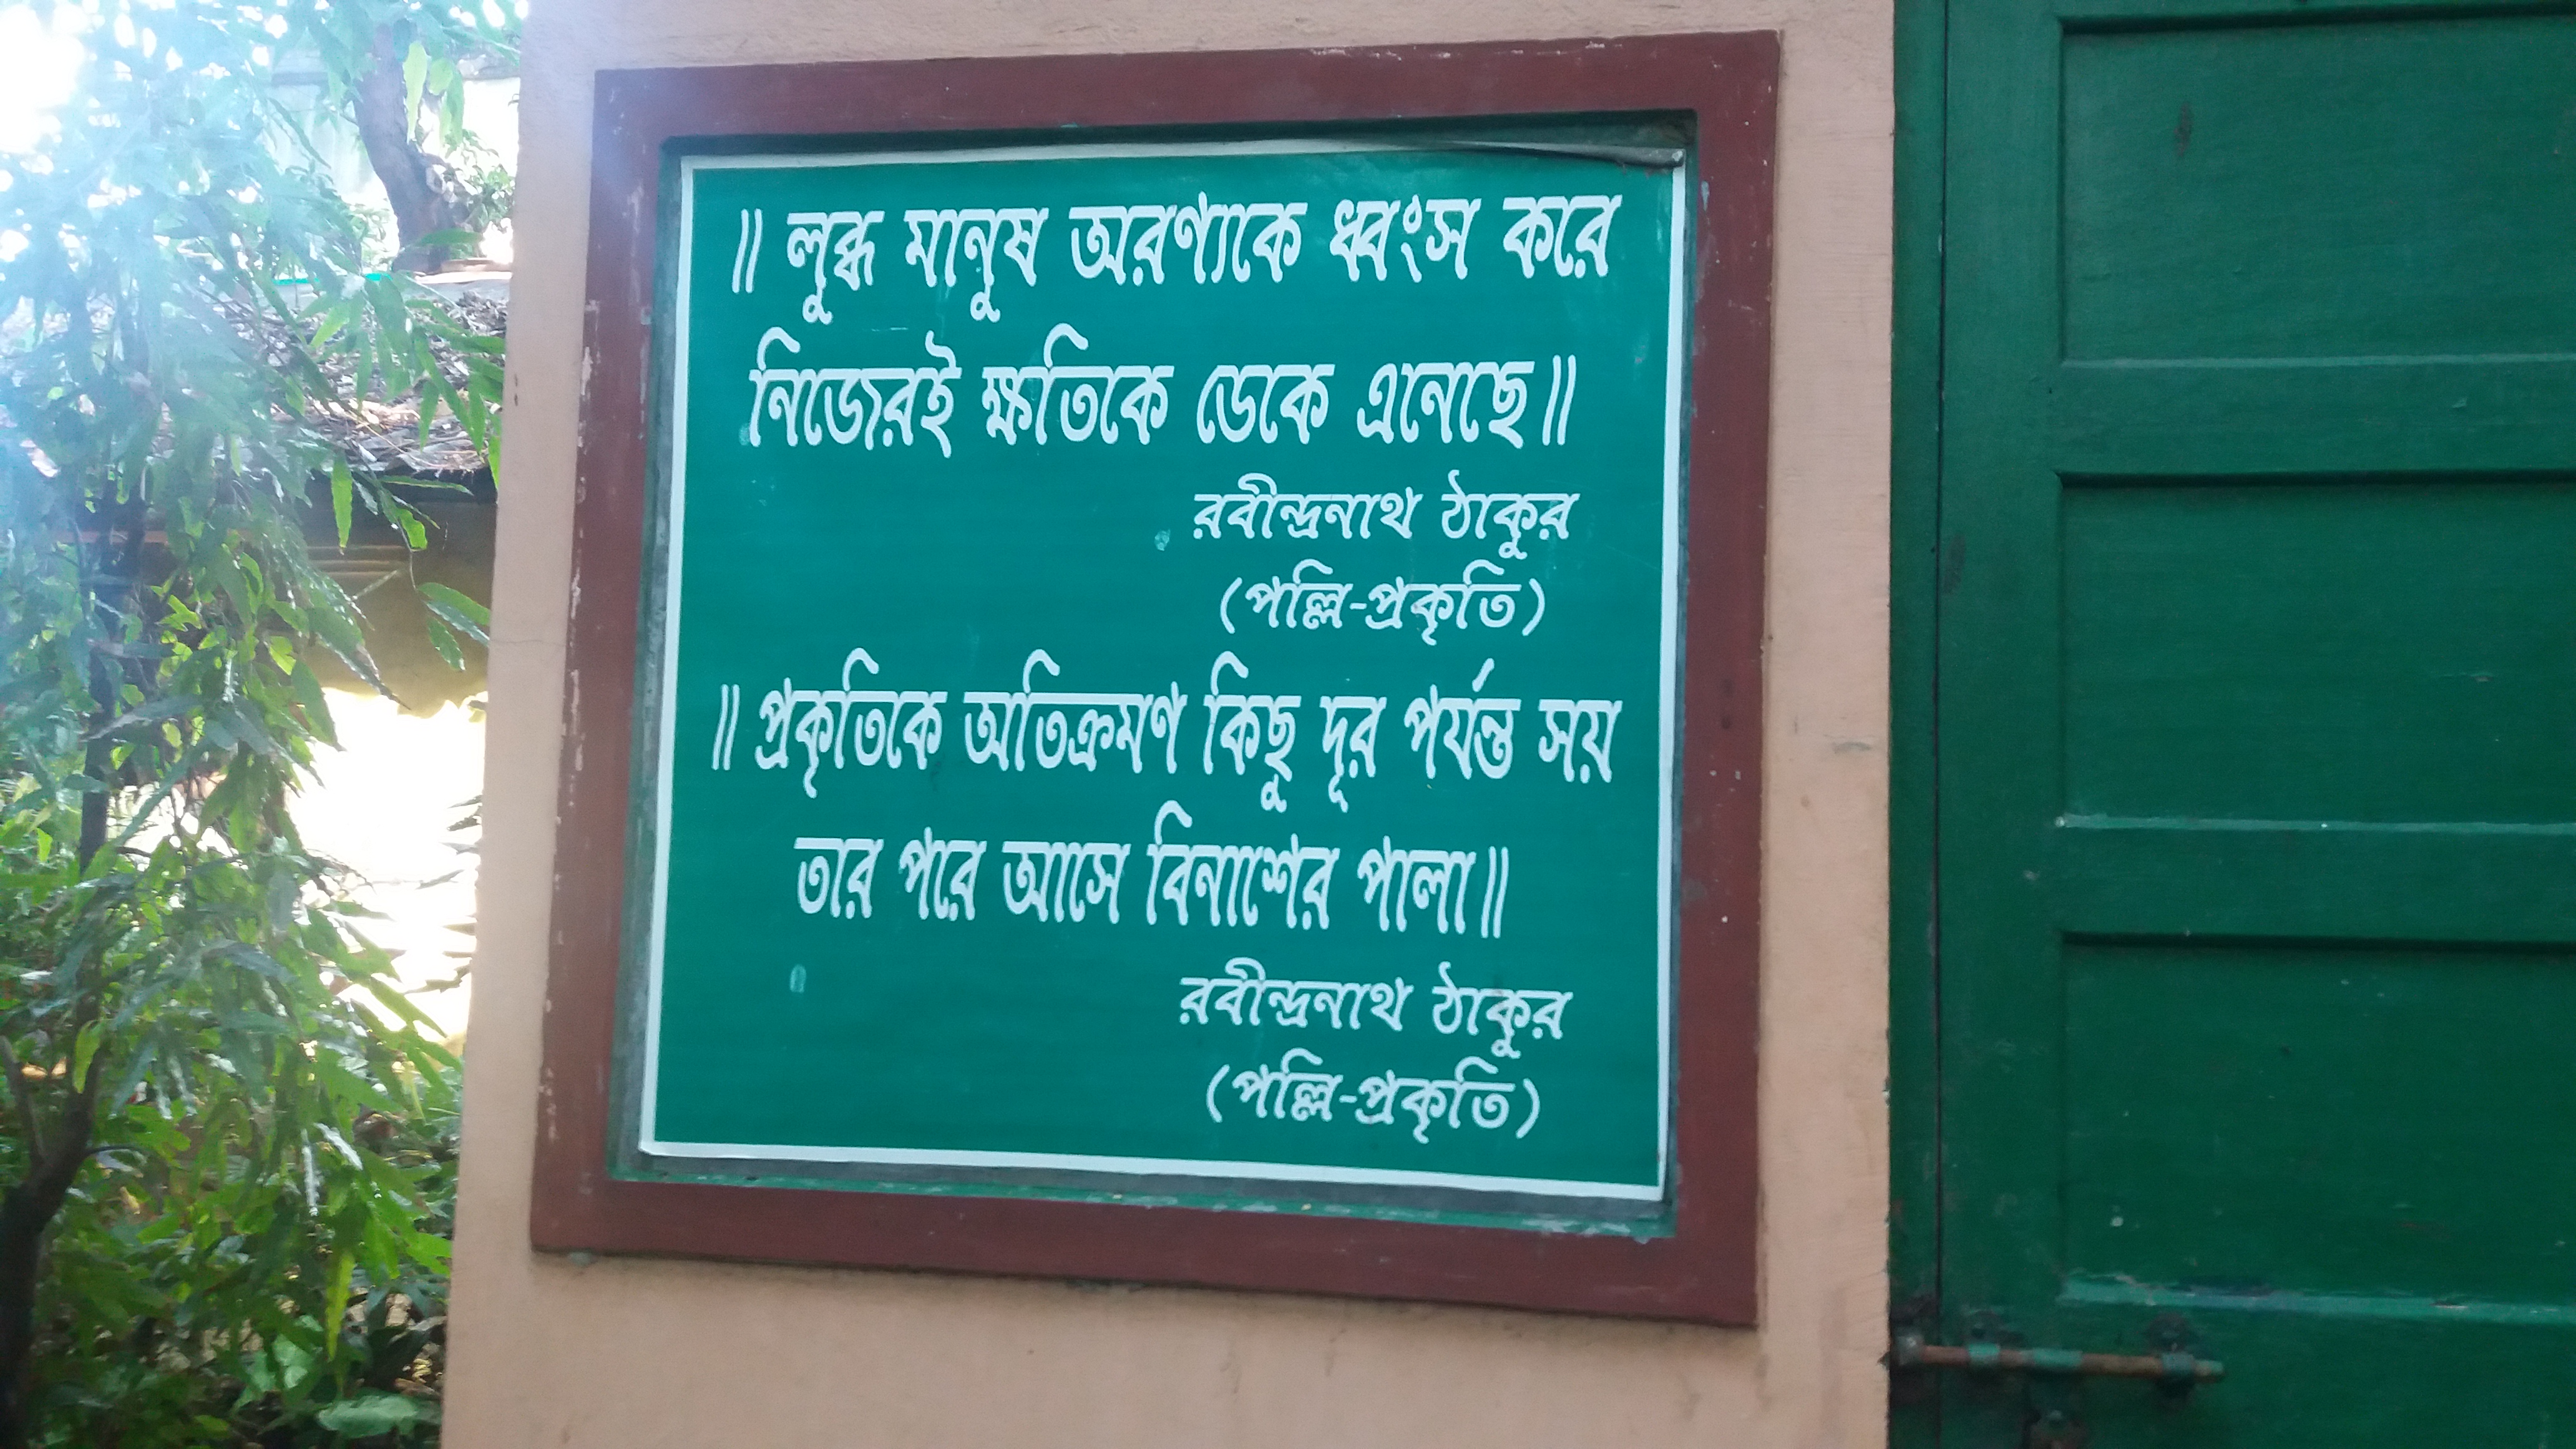 ॥ লুব্ধ মানুষ অরণ্যকে ধ্বংস করে
নিজেরই ক্ষতিকে ডেকে এনেছে॥
রবীন্দ্রনাথ ঠাকুর
(পল্লি-প্রকৃতি)
॥ প্রকৃতিকে অতিক্রমণ কিছু দূর পর্যন্ত সয়
তার পরে আসে বিনাশের পালা॥
রবীন্দ্রনাথ ঠাকুর
(পল্লি-প্রকৃতি)